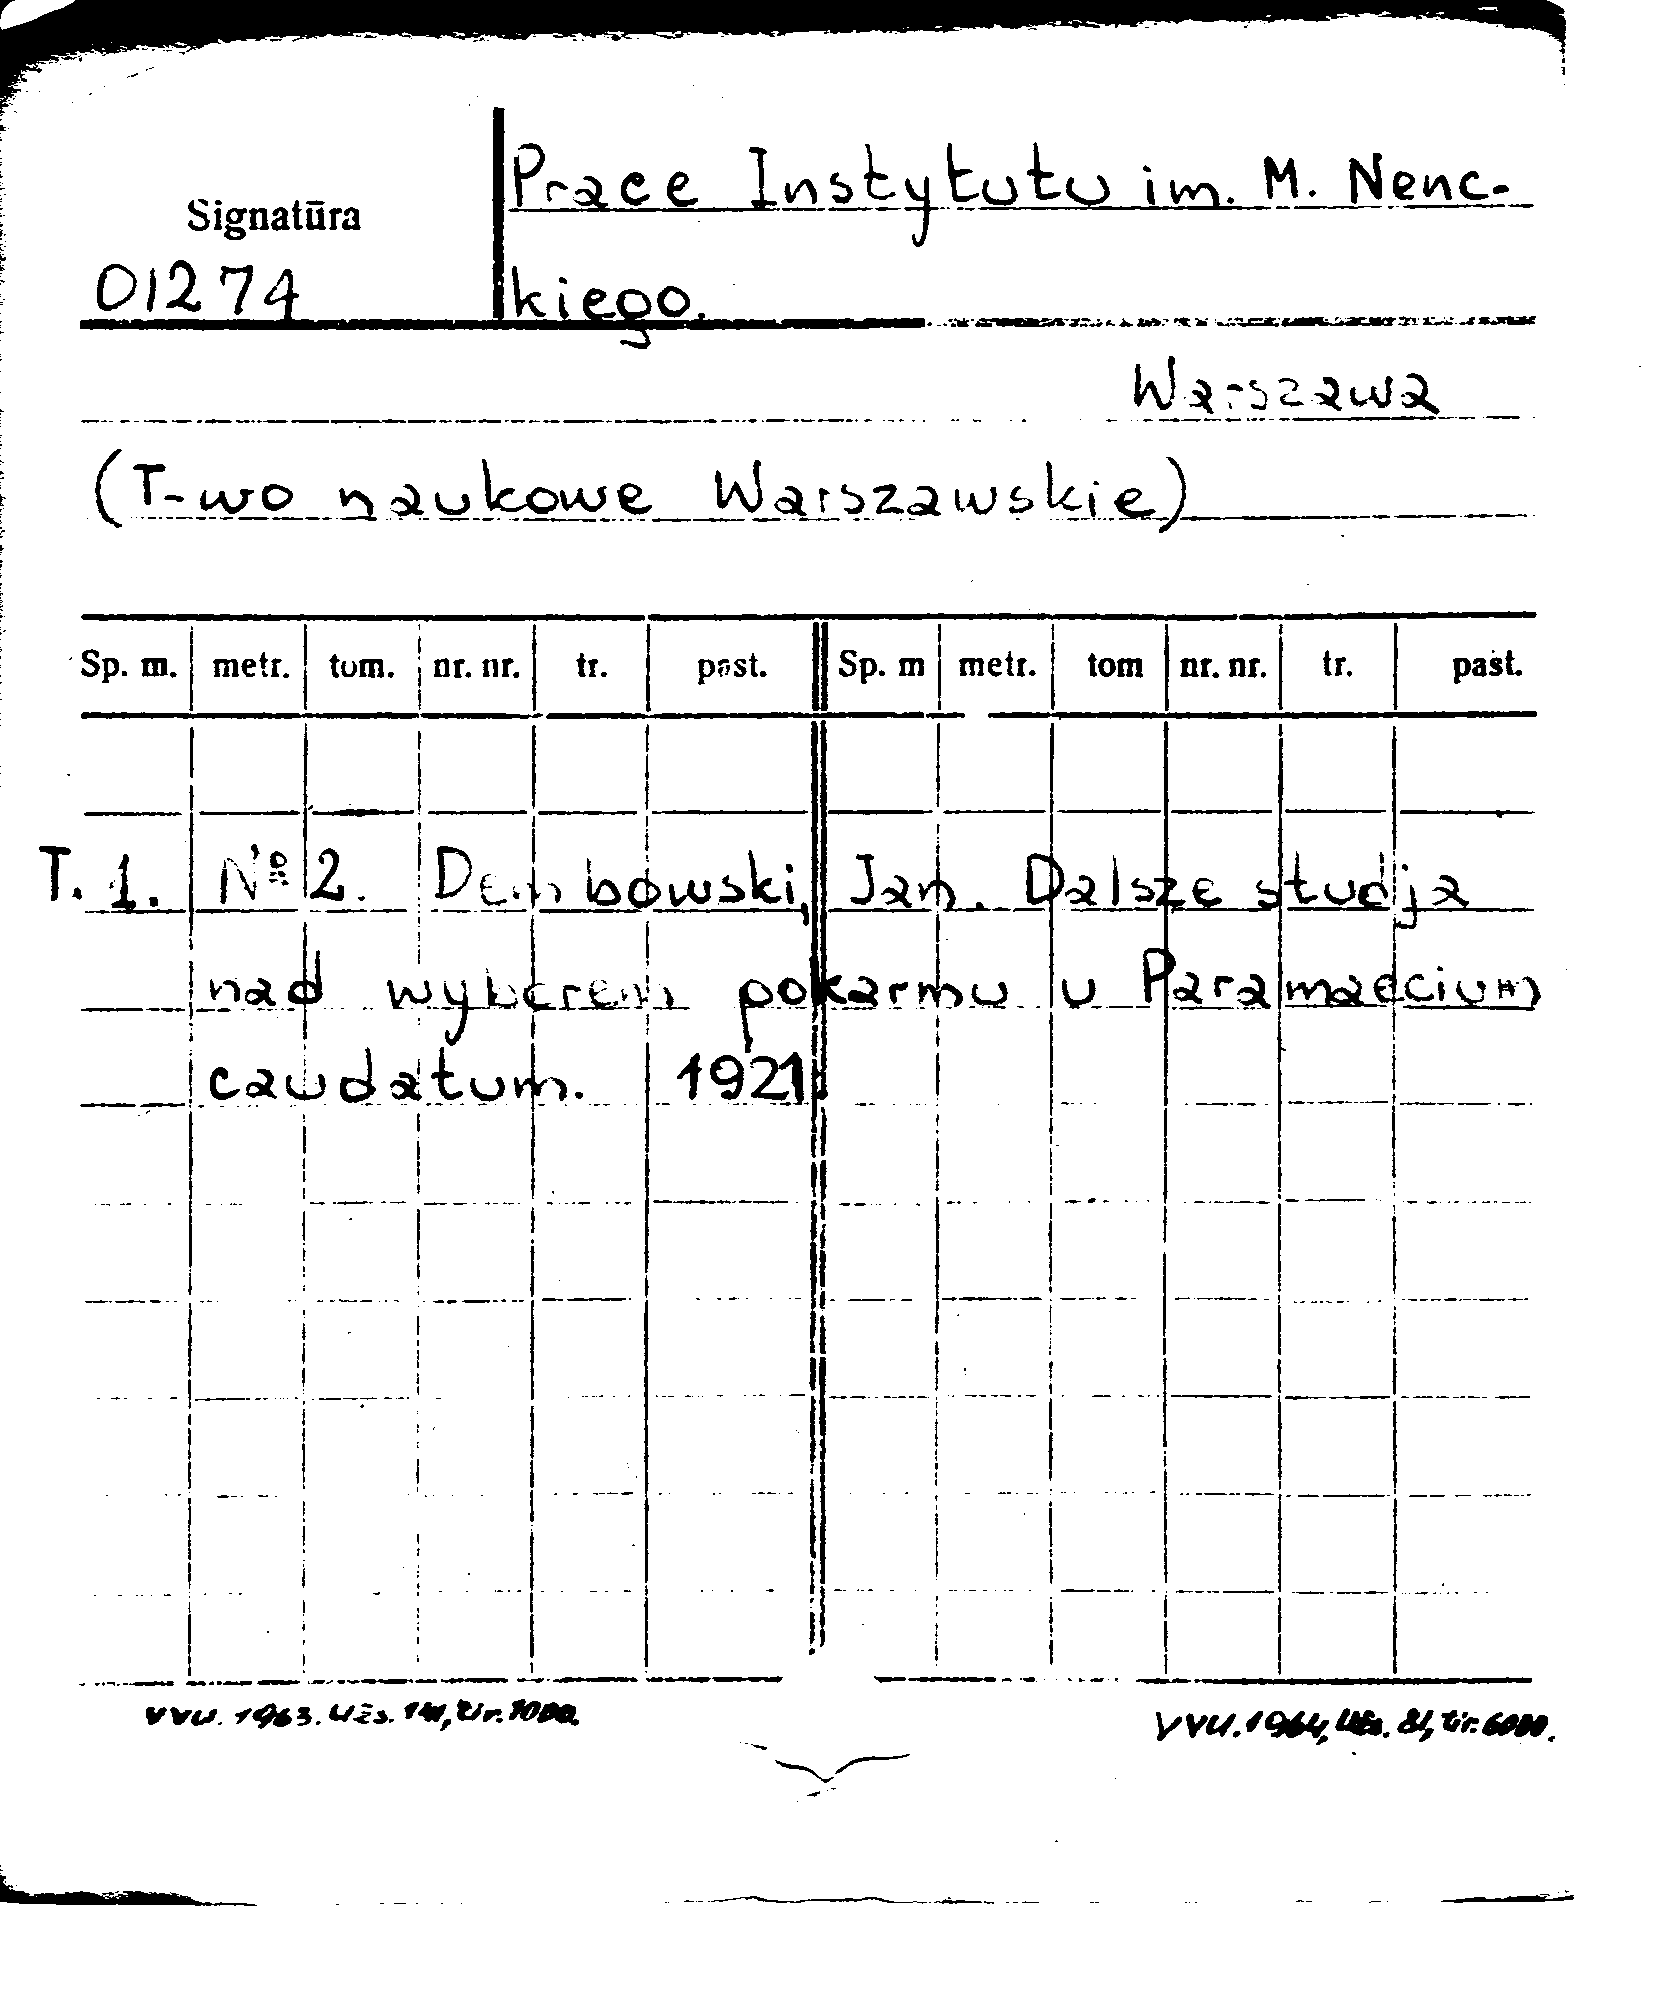 Prace Instytutu im. M. Nenc-
Signatūra
01274
kiego.
Warszawa
(T-wo naukowe Warszawskie)
Sp. m. metr. tom. nr. nr. tr. past. Sp. m metr. tom nr. nr. tr. past.
T. 1. № 2. Dembowski, Jan. Dalsze studja
nad wyborem pokarmu u Paramaecium
caudatum. 1921
VVU. 1963. Užs. 141, tir. 1000.
VVU. 1964, Užs. 81, tir. 6000.